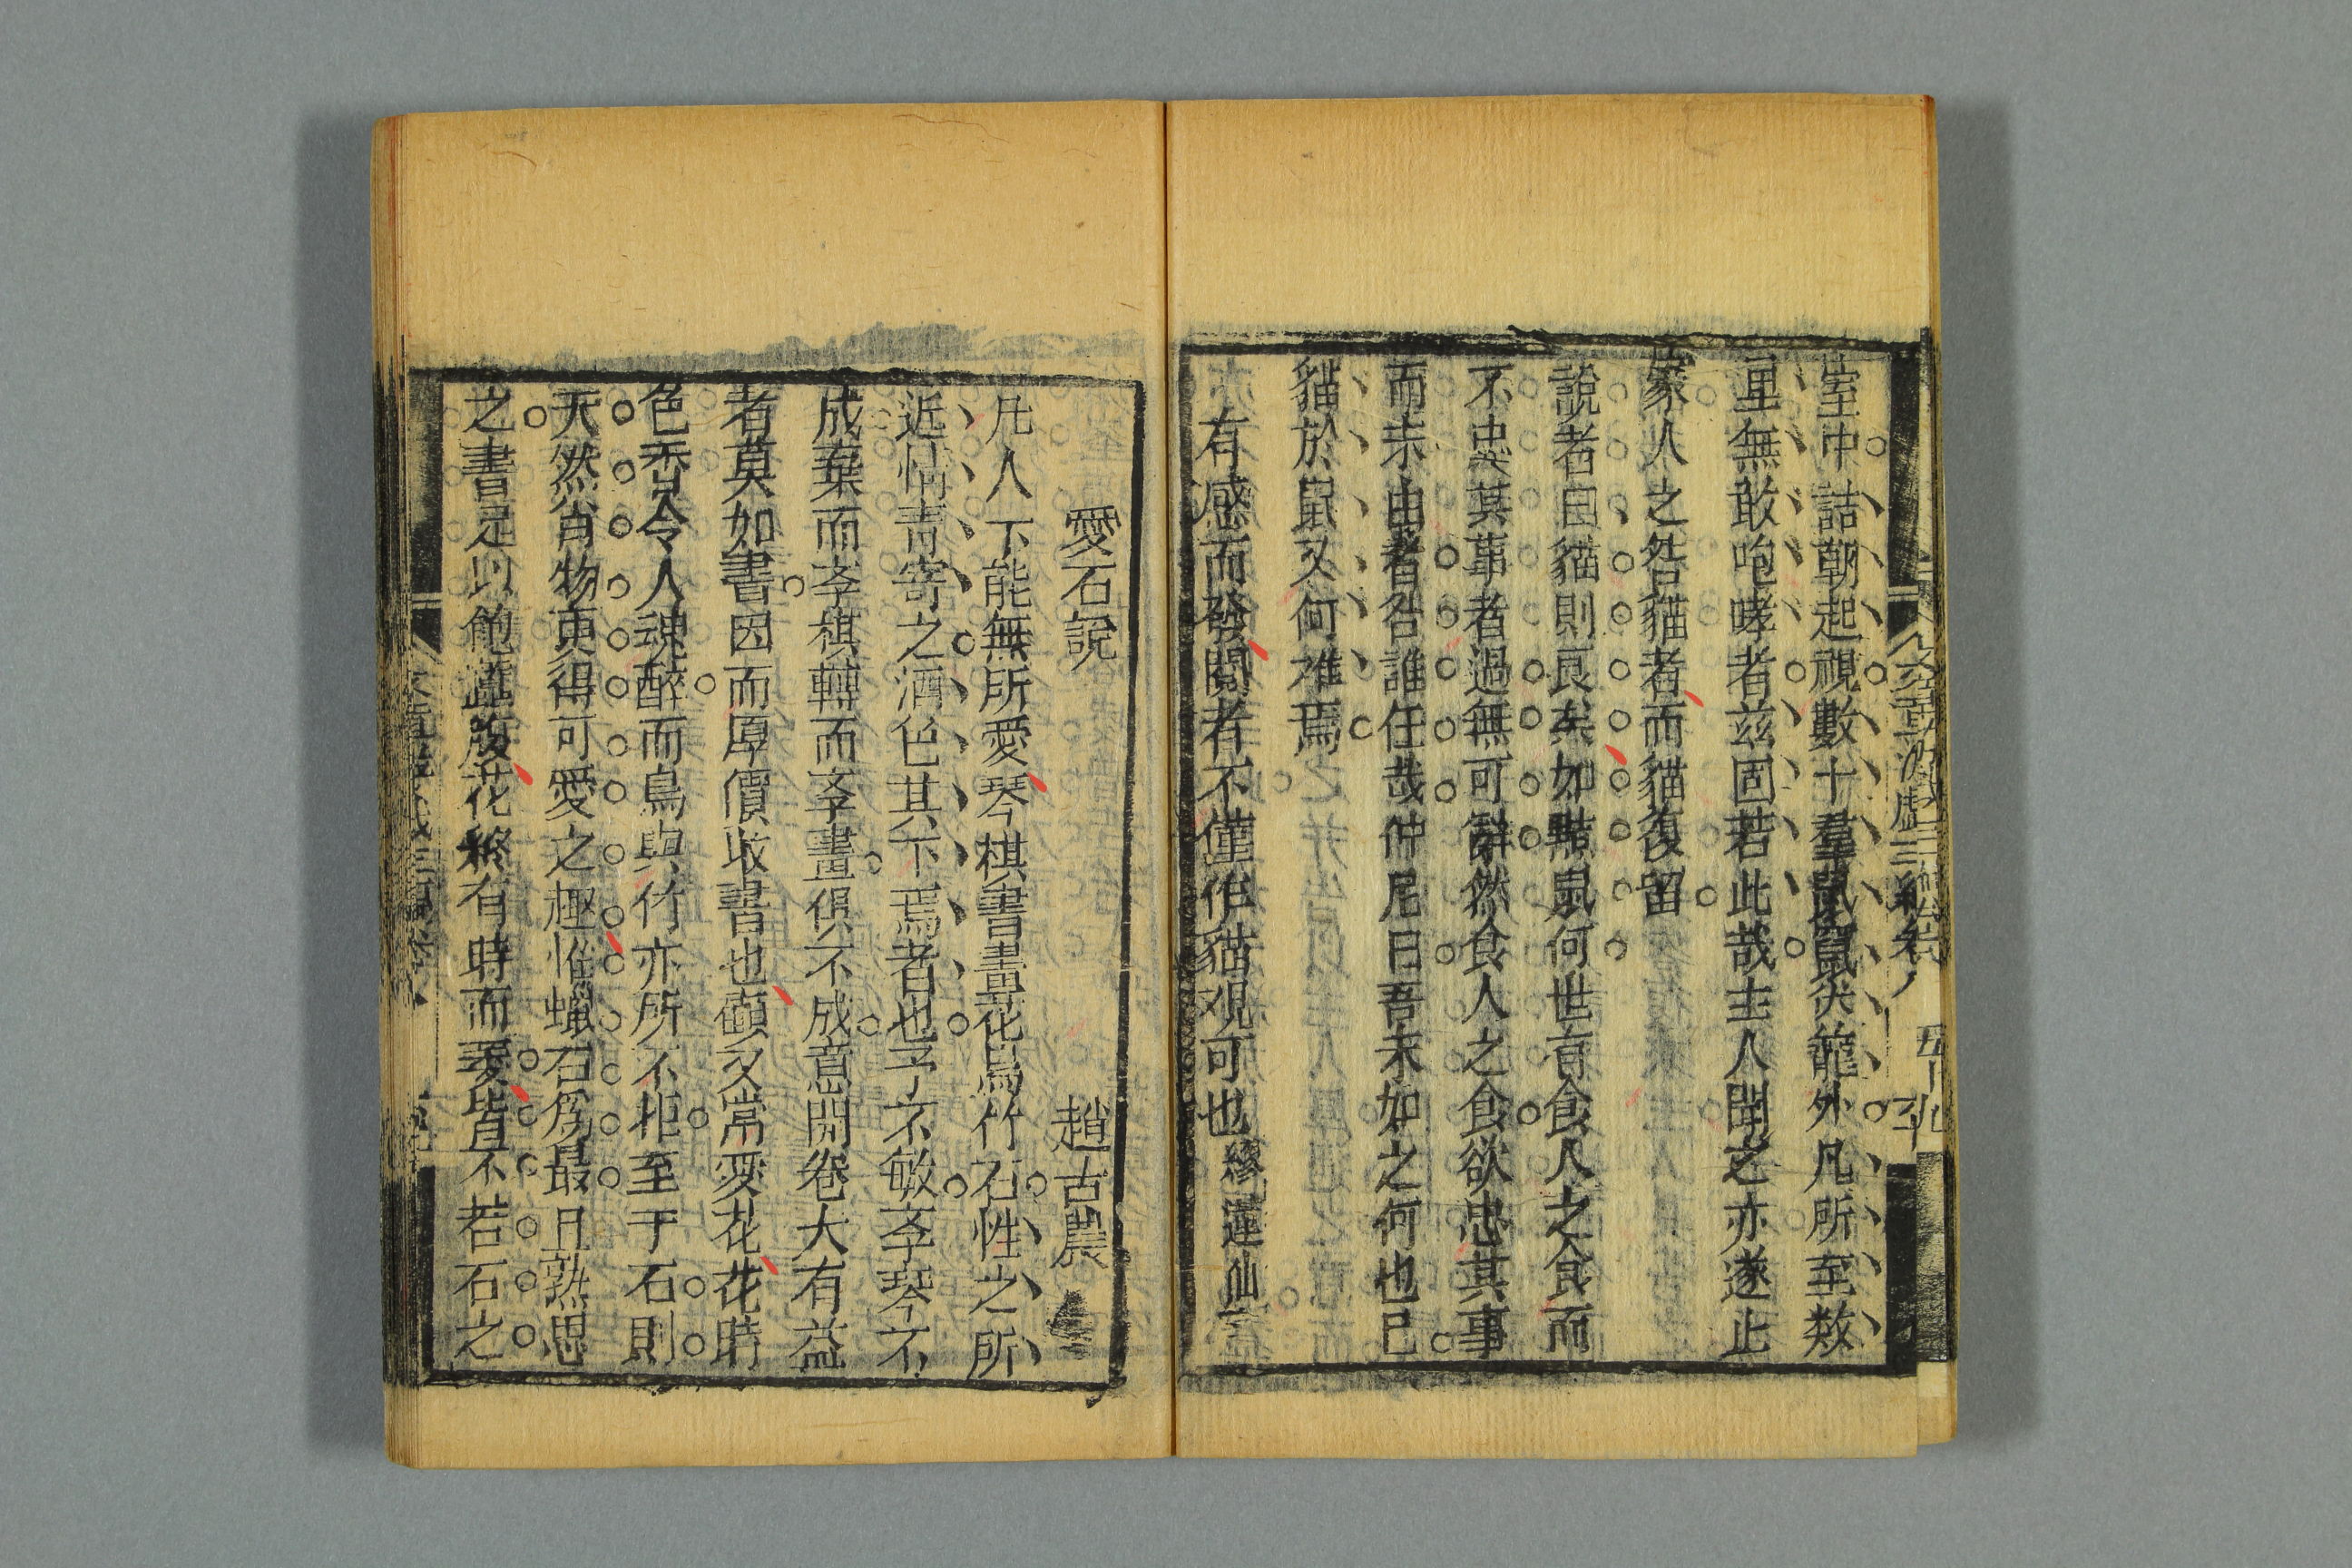 文章游戲三編卷八 五十九
室中詰朝起視數十羣鼠竄突籠外凡所至數
里無敢咆哮者玆固若此哉主人聞之亦遂止
家人之咎貓者而貓復留
說者曰貓則良矣如黠鼠何世有食人之食而
不忠其事者過無可辭然食人之食欲忠其事
而未由者咎誰任哉仲尼曰吾末如之何也已
貓於鼠又何難焉
有感而發閱者不僅作貓觀可也繆蓮仙
愛石說 趙古農
凡人不能無所愛琴棋書畫花鳥竹石性之所
近情青寄之酒色其下焉者也予不敏孝琴不
成棄而孝棋轉而孝畫俱不成意開卷大有益
者莫如書因而厚價收書也顧又常愛花花時
色香令人魂醉而鳥與竹亦所不拒至于石則
天然肖物更得可愛之趣惟蠟石爲最且熟思
之書足以飽蠹腹花終有時而萎皆不若石之